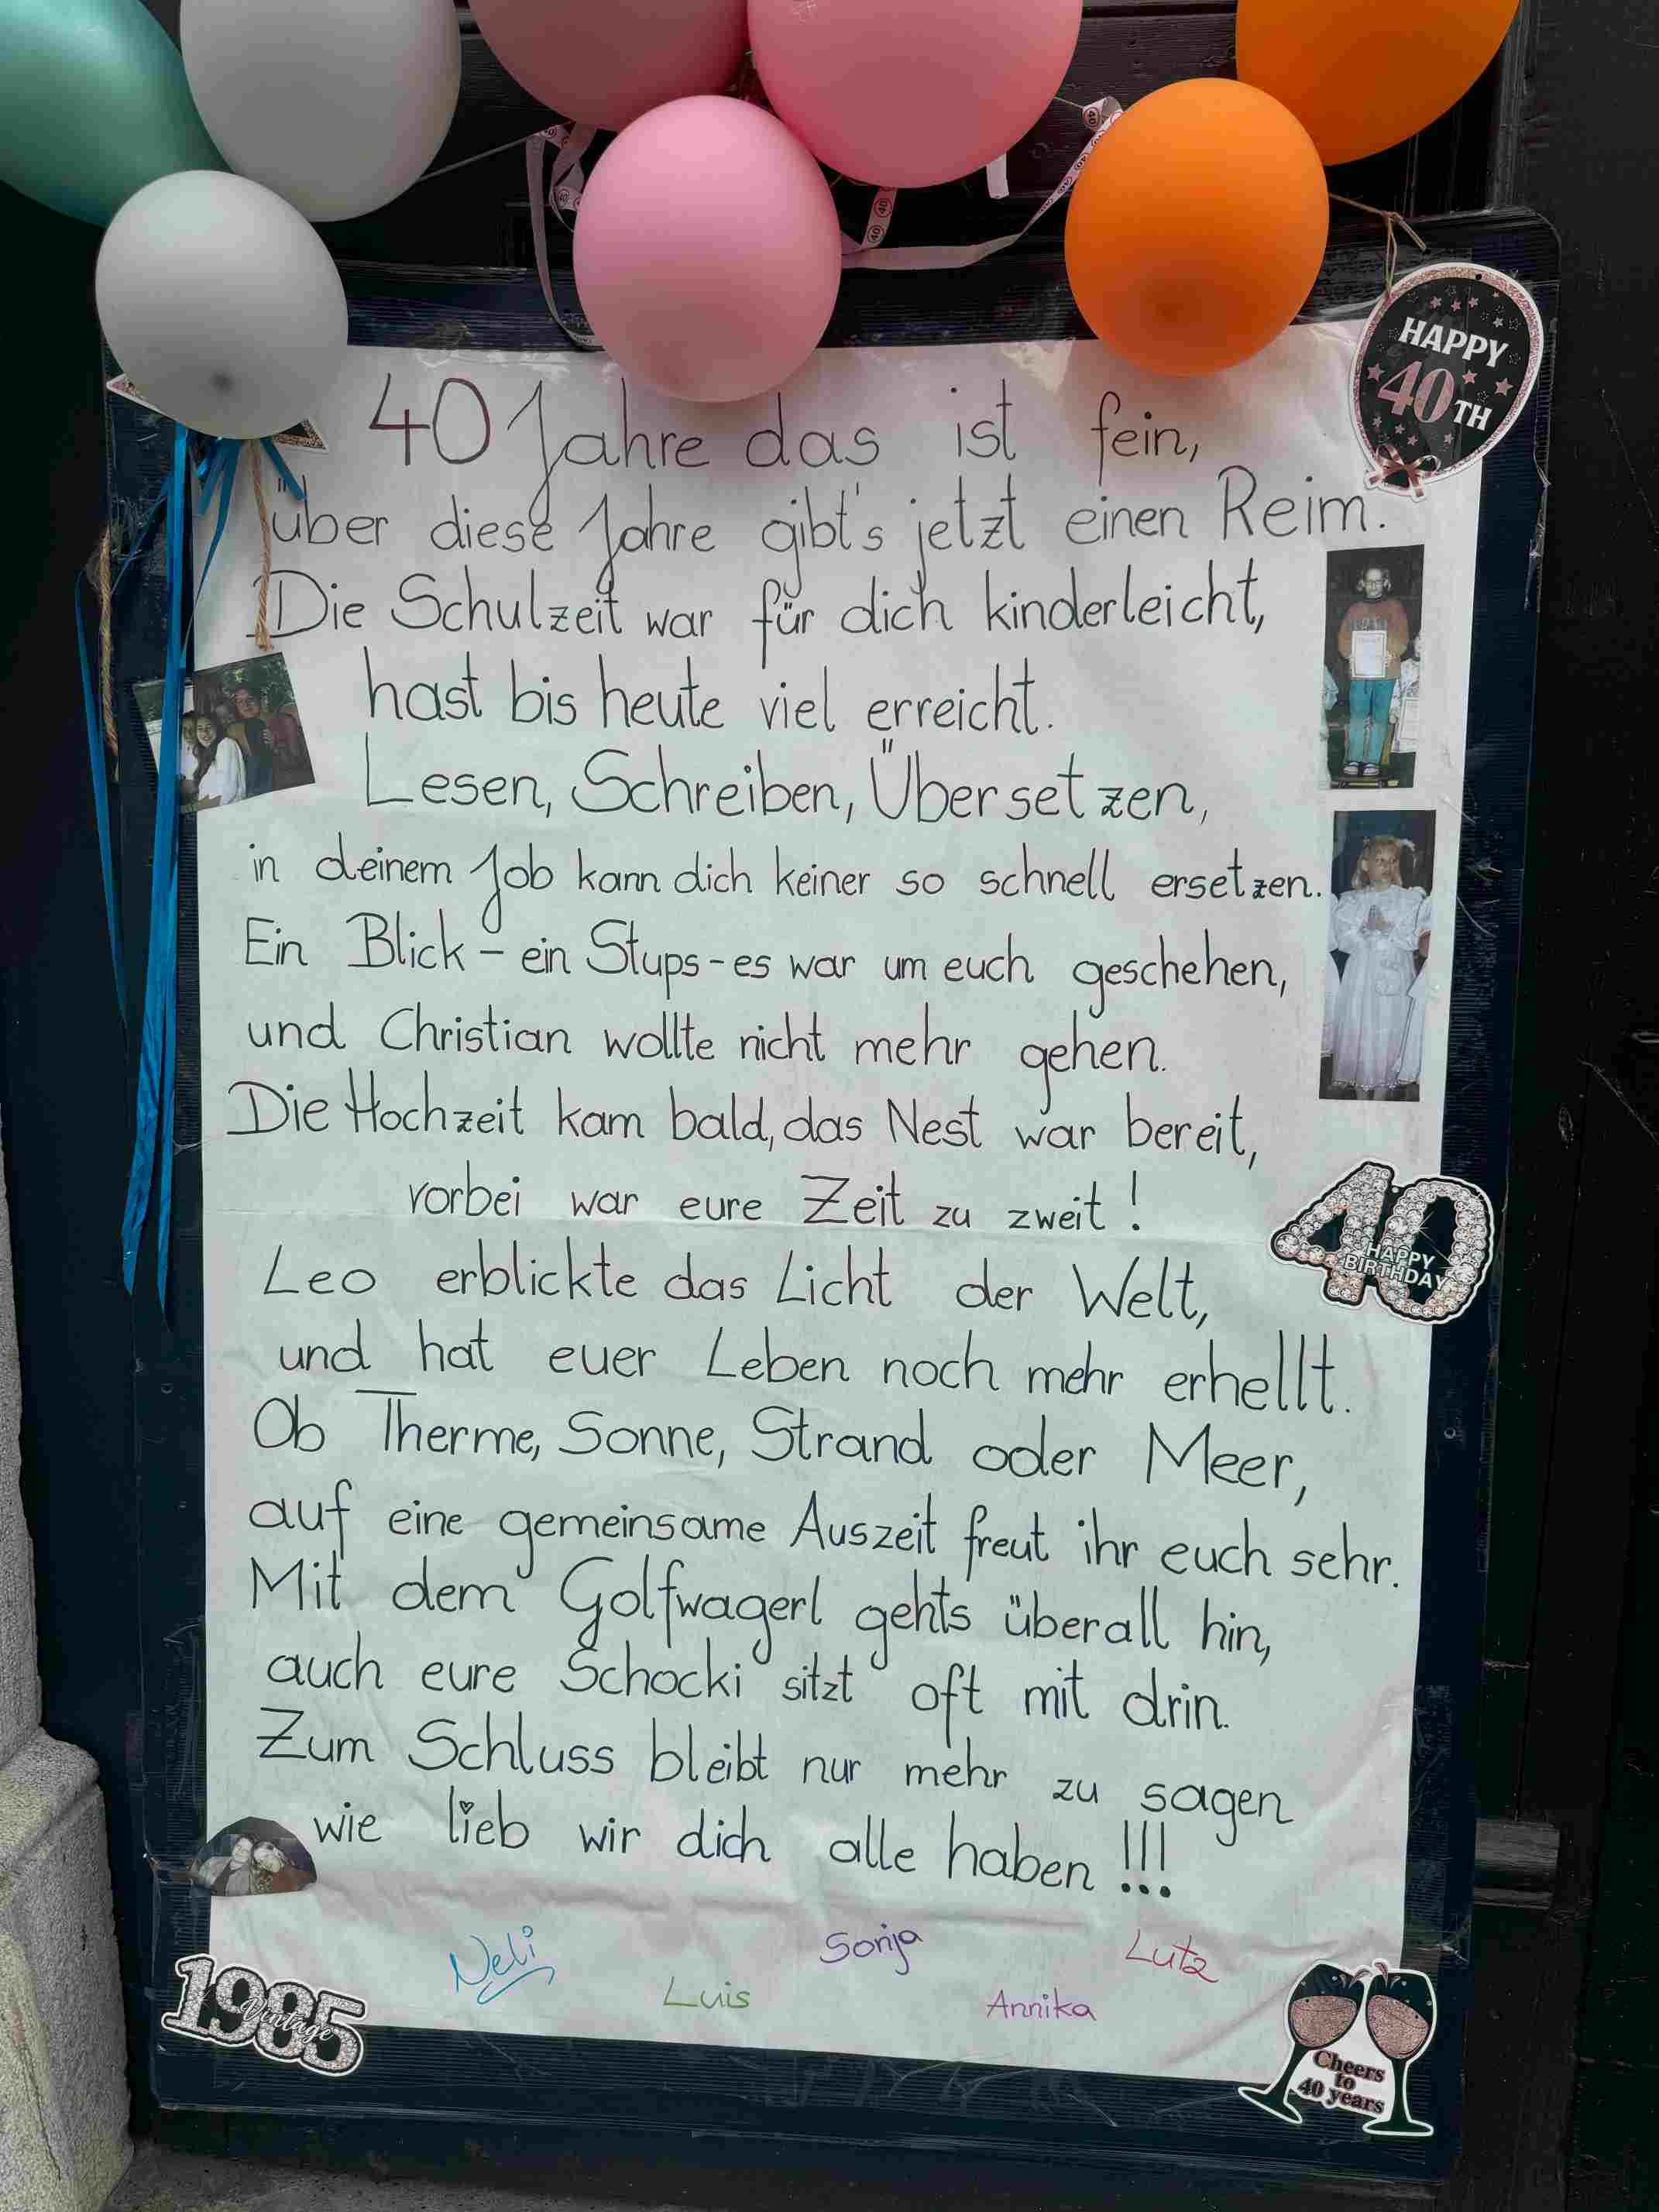 HAPPY
40TH
40 Jahre das ist fein,
über diese Jahre gibt's jetzt einen Reim.
Die Schulzeit war für dich kinderleicht,
hast bis heute viel erreicht.
Lesen, Schreiben, Übersetzen,
in deinem Job kann dich keiner so schnell ersetzen.
Ein Blick - ein Stups - es war um euch geschehen,
und Christian wollte nicht mehr gehen.
Die Hochzeit kam bald, das Nest war bereit,
vorbei war eure Zeit zu zweit!
40
HAPPY
BIRTHDAY
Leo erblickte das Licht der Welt,
und hat euer Leben noch mehr erhellt.
Ob Therme, Sonne, Strand oder Meer,
auf eine gemeinsame Auszeit freut ihr euch sehr.
Mit dem Golfwagerl gehts überall hin,
auch eure Schocki sitzt oft mit drin.
Zum Schluss bleibt nur mehr zu sagen
wie lieb wir dich alle haben!!!
Neli
Luis
Sonja
Annika
Lutz
1985
Vintage
Cheers
to
40 years